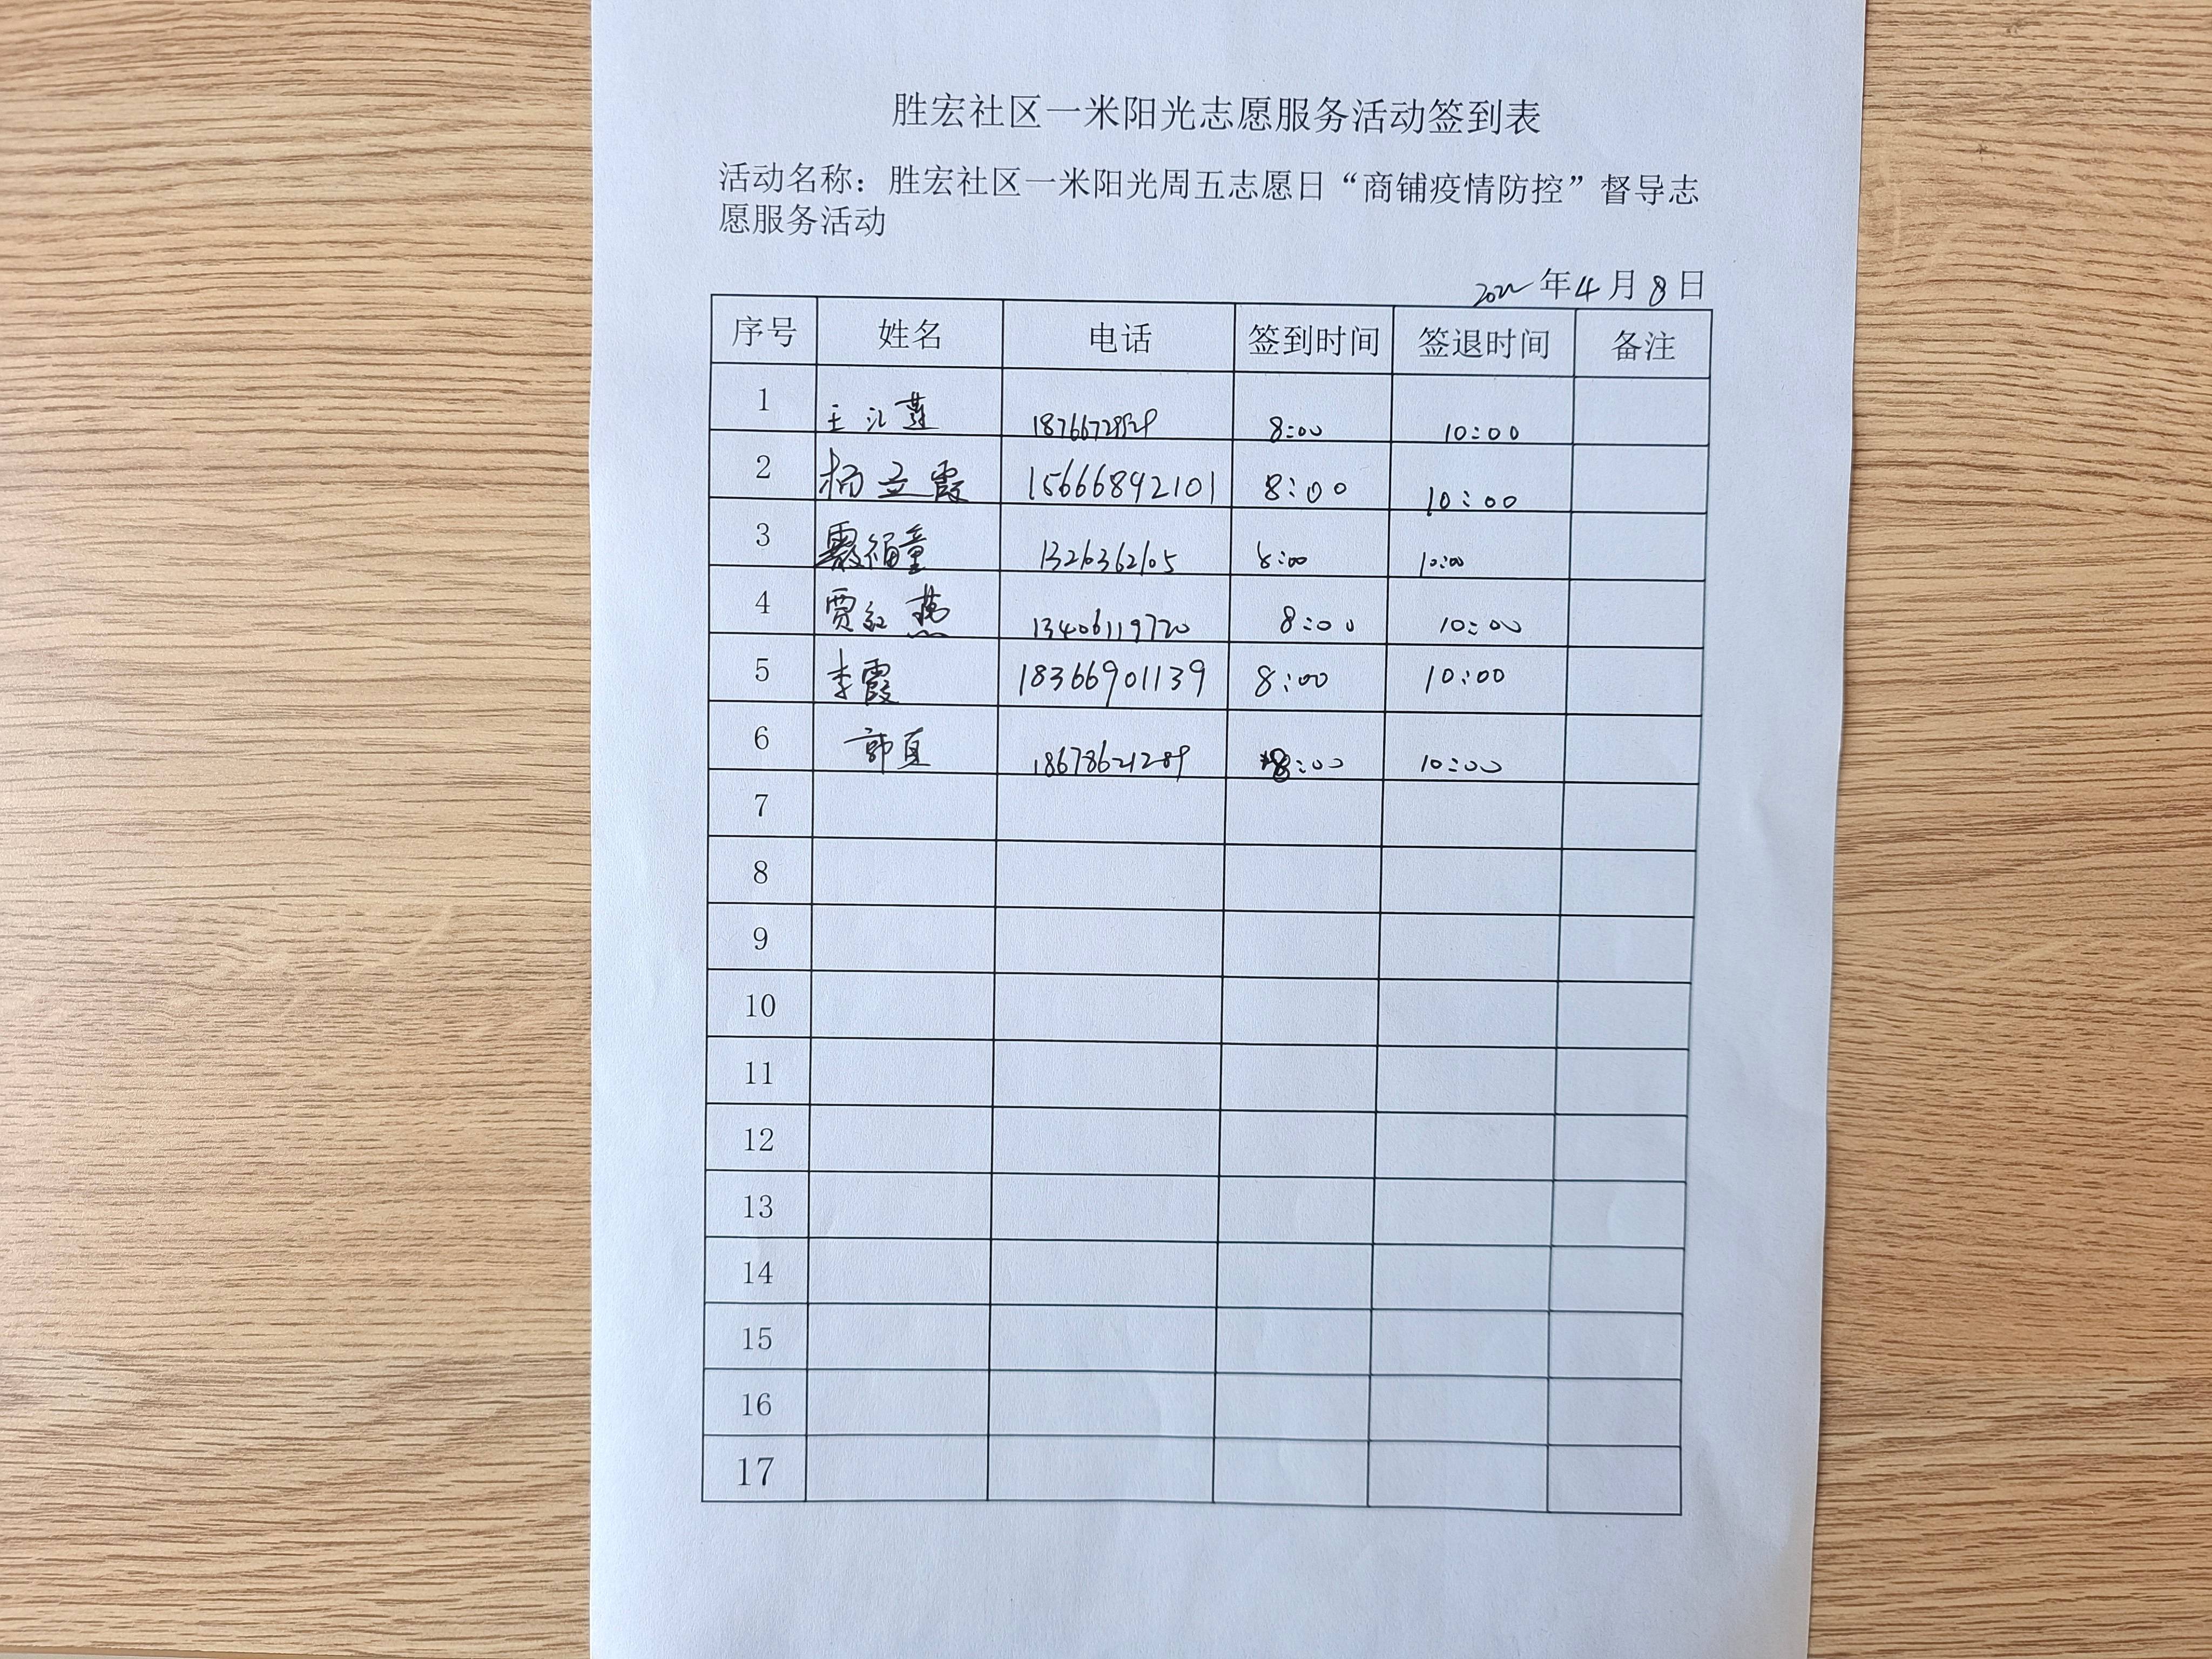 胜宏社区一米阳光志愿服务活动签到表
活动名称：胜宏社区一米阳光周五志愿日“商铺疫情防控”督导志
愿服务活动
2022年4月8日
序号 姓名 电话 签到时间 签退时间 备注
1 王汇莲 8:00 10:00
2 杨立霞 15666892101 8:00 10:00
3 1326362105 8:00 10:00
4 贾红燕 13406119720 8:00 10:00
5 李霞 18366901139 8:00 10:00
6 郭直 18678621289 8:00 10:00
7
8
9
10
11
12
13
14
15
16
17